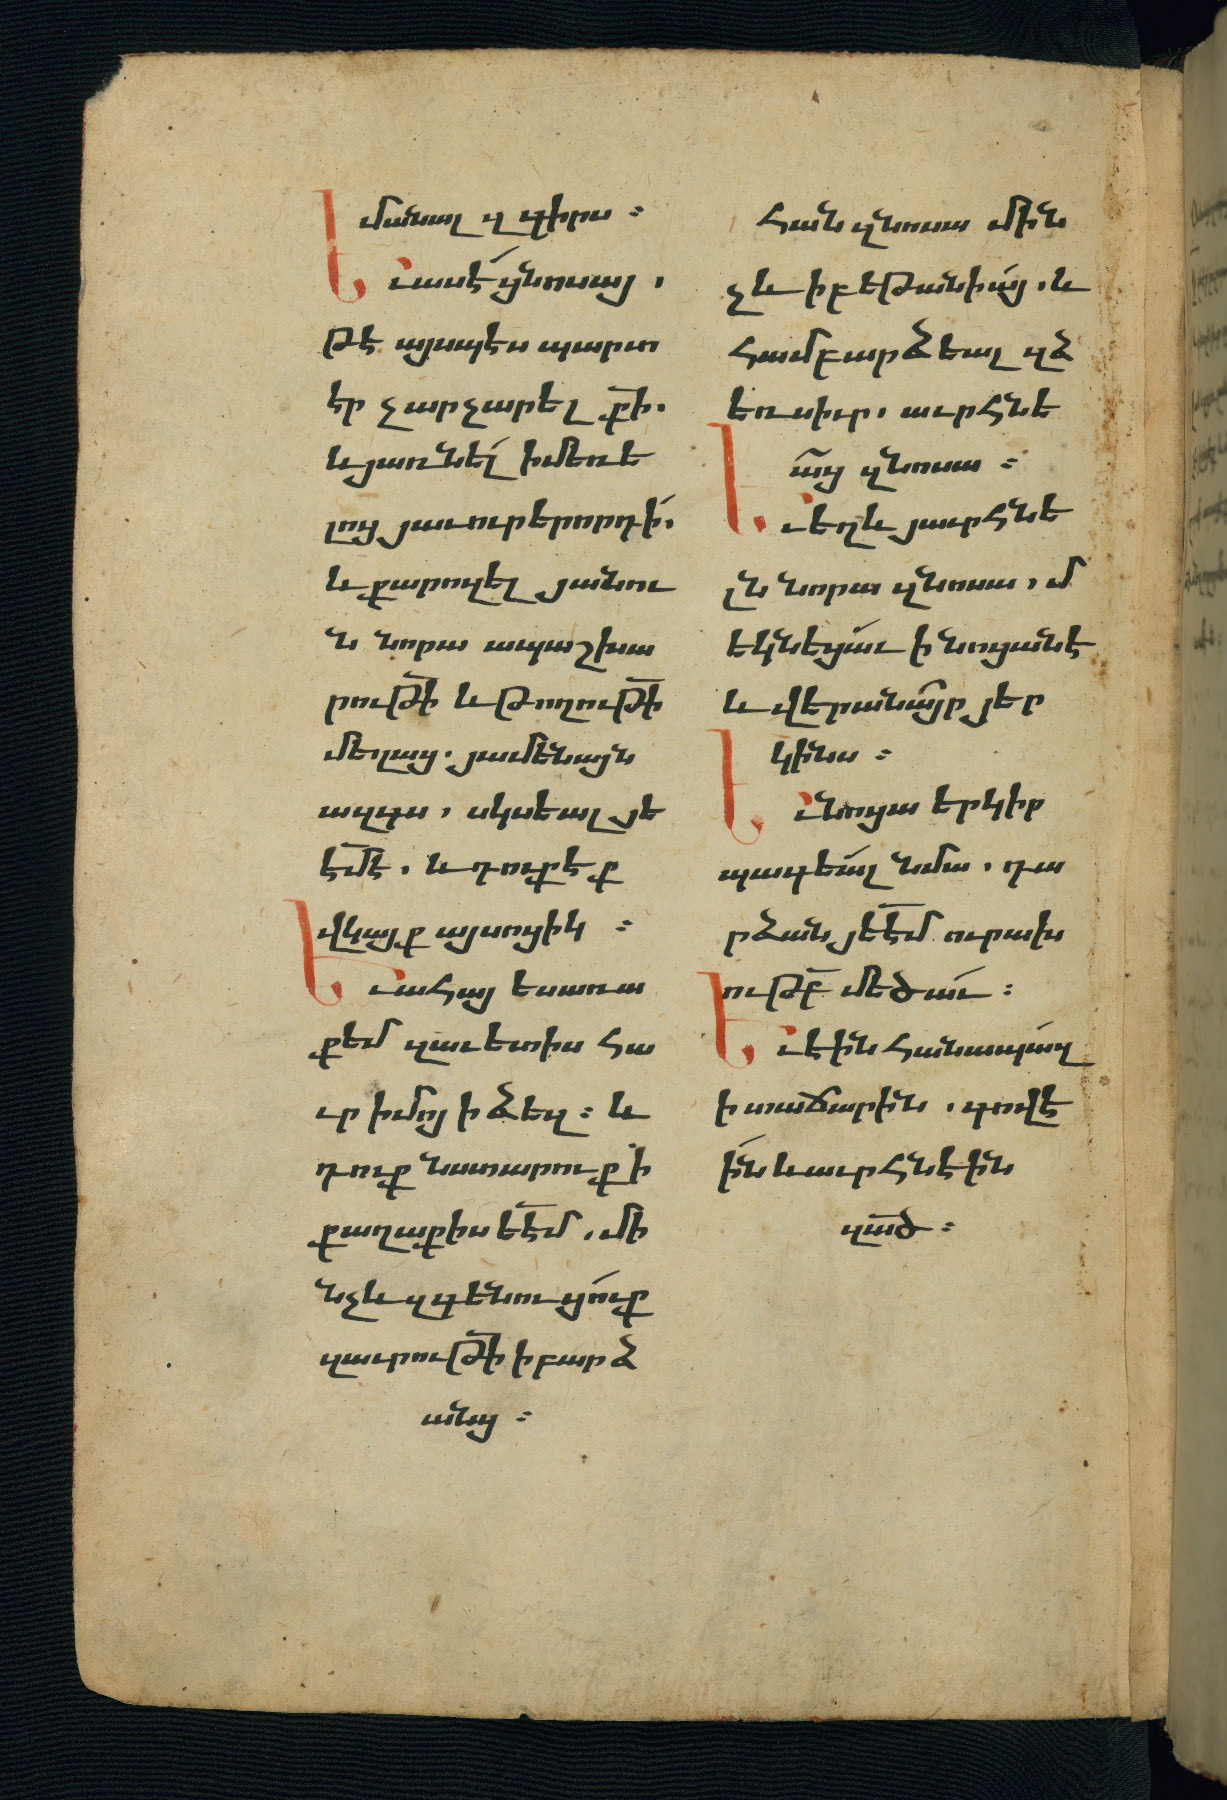 մանալ զգիրս ։
Եւ ասէ ցնոսայ ,
թէ այսպէս պարտ
էր չարչարել ք̅ի.
և յառնել իմեռե
լոց յաւուր երորդի.
և քարոզել յանու
ն նորա ապաշխա
րութ̅ի և թողութ̅ի
մեղաց. յամենայն
ազգս , սկսեալ յե
է̅մէ . և դուք էք
վկայք այսոցիկ ։
Եւ ահայ ես առա
քեմ զաւետիս հա
ւր իմոյ ի ձեզ ։ և
դուք նստարուք ի
քաղաքիս եէ̅մ , մի
նչև զգենուցուք
զաւրութ̅ի ի բարձ
անց ։
Հան զնոսա մին
չև ի բեթանիայ . և
համբարձեալ զձ
եռս իւր , աւրհնե
աց զնոսա ։
Եւ եղև յաւրհնե
լն նորա զնոսա , մ
եկնեցաւ ի նոցանէ
և վերանայր յեր
կինս ։
Եւ նոցա երկիր
պագեալ նմա , դա
րձան յեէ̅մ ուրախ
ութբ̅ մեծաւ ։
Եւ էին հանապազ
ի տաճարին , գովէ
ին և աւրհնէին
զա̅ծ ։